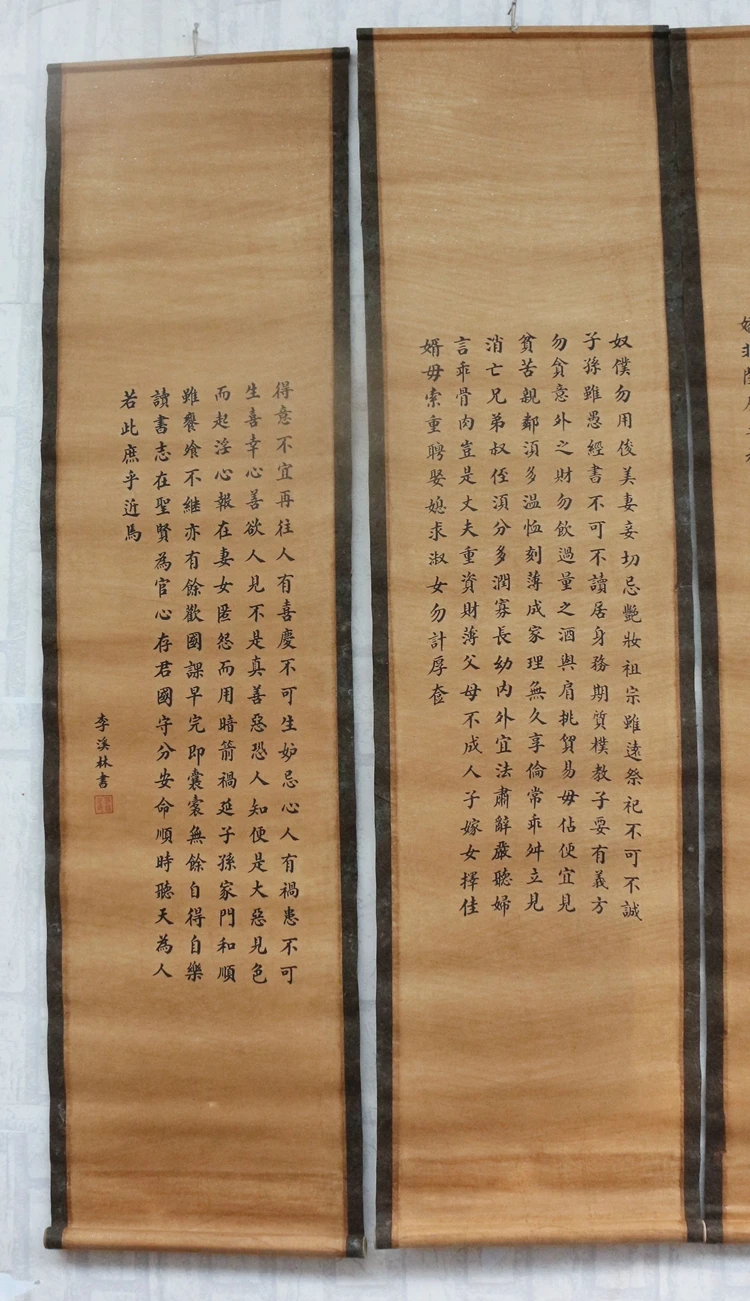 奴僕勿用俊美妻妾切忌艷妝祖宗雖遠祭祀不可不誠
子孫雖愚經書不可不讀居身務期質樸教子要有義方
勿貪意外之財勿飲過量之酒與肩挑貿易毋佔便宜見
貧苦親鄰須多溫恤刻薄成家理無久享倫常乖舛立見
消亡兄弟叔侄須分多潤寡長幼內外宜法肅辭嚴聽婦
言乖骨肉豈是丈夫重資財薄父母不成人子嫁女擇佳
婿毋索重聘娶媳求淑女勿計厚奩
得意不宜再往人有喜慶不可生妒忌心人有禍患不可
生喜幸心善欲人見不是真善惡恐人知便是大惡見色
而起淫心報在妻女匿怨而用暗箭禍延子孫家門和順
雖饔飧不繼亦有餘歡國課早完即囊橐無餘自得自樂
讀書志在聖賢為官心存君國守分安命順時聽天為人
若此庶乎近焉
李溪林書